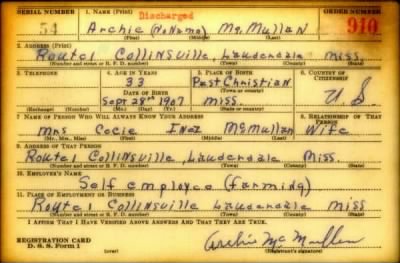 SERIAL NUMBER 1. NAME (Print) ORDER NUMBER
Discharged
54 Archie (No Name) McMullan 910
(First) (Middle) (Last)
2. ADDRESS (Print)
Route 1 Collinsville, Lauderdale Miss.
(Number and street or R. F. D. number) (Town) (County) (State)
3. TELEPHONE 4. AGE IN YEARS 5. PLACE OF BIRTH 6. COUNTRY OF CITIZENSHIP
33 Past Christian
DATE OF BIRTH (Town or county)
Sept 28th 1907 Miss. U S
(Exchange) (Number) (Mo.) (Day) (Yr.) (State or country)
7. NAME OF PERSON WHO WILL ALWAYS KNOW YOUR ADDRESS 8. RELATIONSHIP OF THAT PERSON
Mrs Cocie Inez McMullan Wife
(Mr., Mrs., Miss) (First) (Middle) (Last)
9. ADDRESS OF THAT PERSON
Route 1 Collinsville, Lauderdale Miss.
(Number and street or R. F. D. number) (Town) (County) (State)
10. EMPLOYER'S NAME
Self employee (farming)
11. PLACE OF EMPLOYMENT OR BUSINESS
Route 1 Collinsville Lauderdale Miss
(Number and street or R. F. D. number) (Town) (County) (State)
I AFFIRM THAT I HAVE VERIFIED ABOVE ANSWERS AND THAT THEY ARE TRUE.
REGISTRATION CARD
D. S. S. Form 1 (over) Archie McMullan
(Registrant's signature)